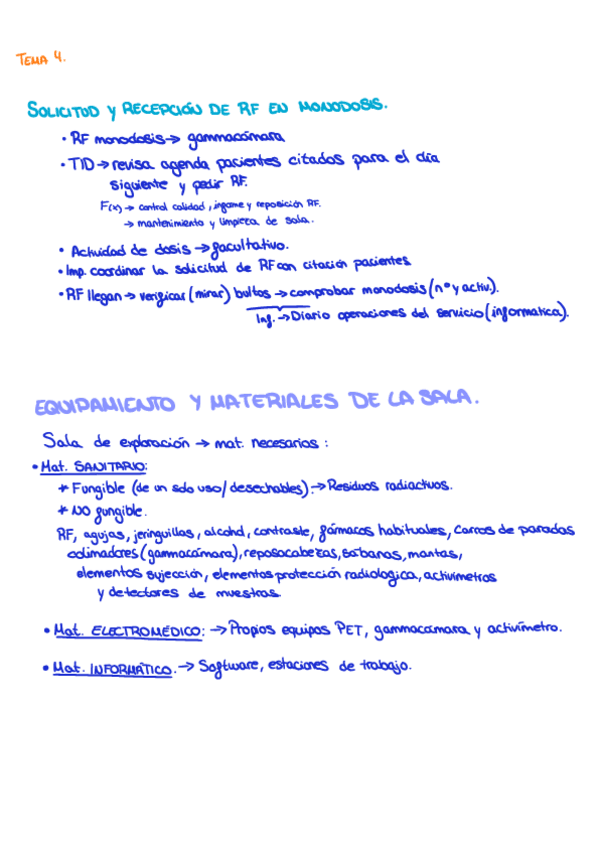 TEMA 4.
SOLICITUD Y RECEPCIÓN DE RF EN MONODOSIS.
• RF monodosis → gammacámara
• TID → revisa agenda pacientes citados para el día
siguiente y pedir RF.
F(x) → control calidad, informe y reposición RF.
→ mantenimiento y limpieza de sala.
• Actividad de dosis → facultativo.
• Imp. coordinar la solicitud de RF con citación pacientes
• RF llegan → verificar (mirar) bultos → comprobar monodosis (nº y activ.).
Inf. → Diario operaciones del servicio (informatica).
EQUIPAMIENTO Y MATERIALES DE LA SALA.
Sala de exploración → mat. necesarios :
• Mat. SANITARIO:
* Fungible (de un solo uso / desechables). → Residuos radiactivos.
* NO fungible.
RF, agujas, jeringuillas, alcohol, contraste, fármacos habituales, Carros de paradas
colimadores (gammacámara), reposacabezas, sábanas, mantas,
elementos sujección, elementos protección radiologica, activímetros
y detectores de muestras.
• Mat. ELECTROMÉDICO: → Propios equipos PET, gammacámara y activímetro.
• Mat. INFORMÁTICO. → Software, estaciones de trabajo.